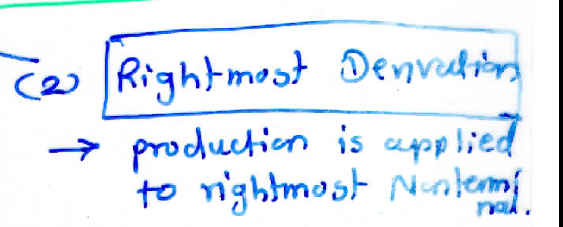 (2) Rightmost Derivation
→ production is applied
to rightmost Nontermi
nal.